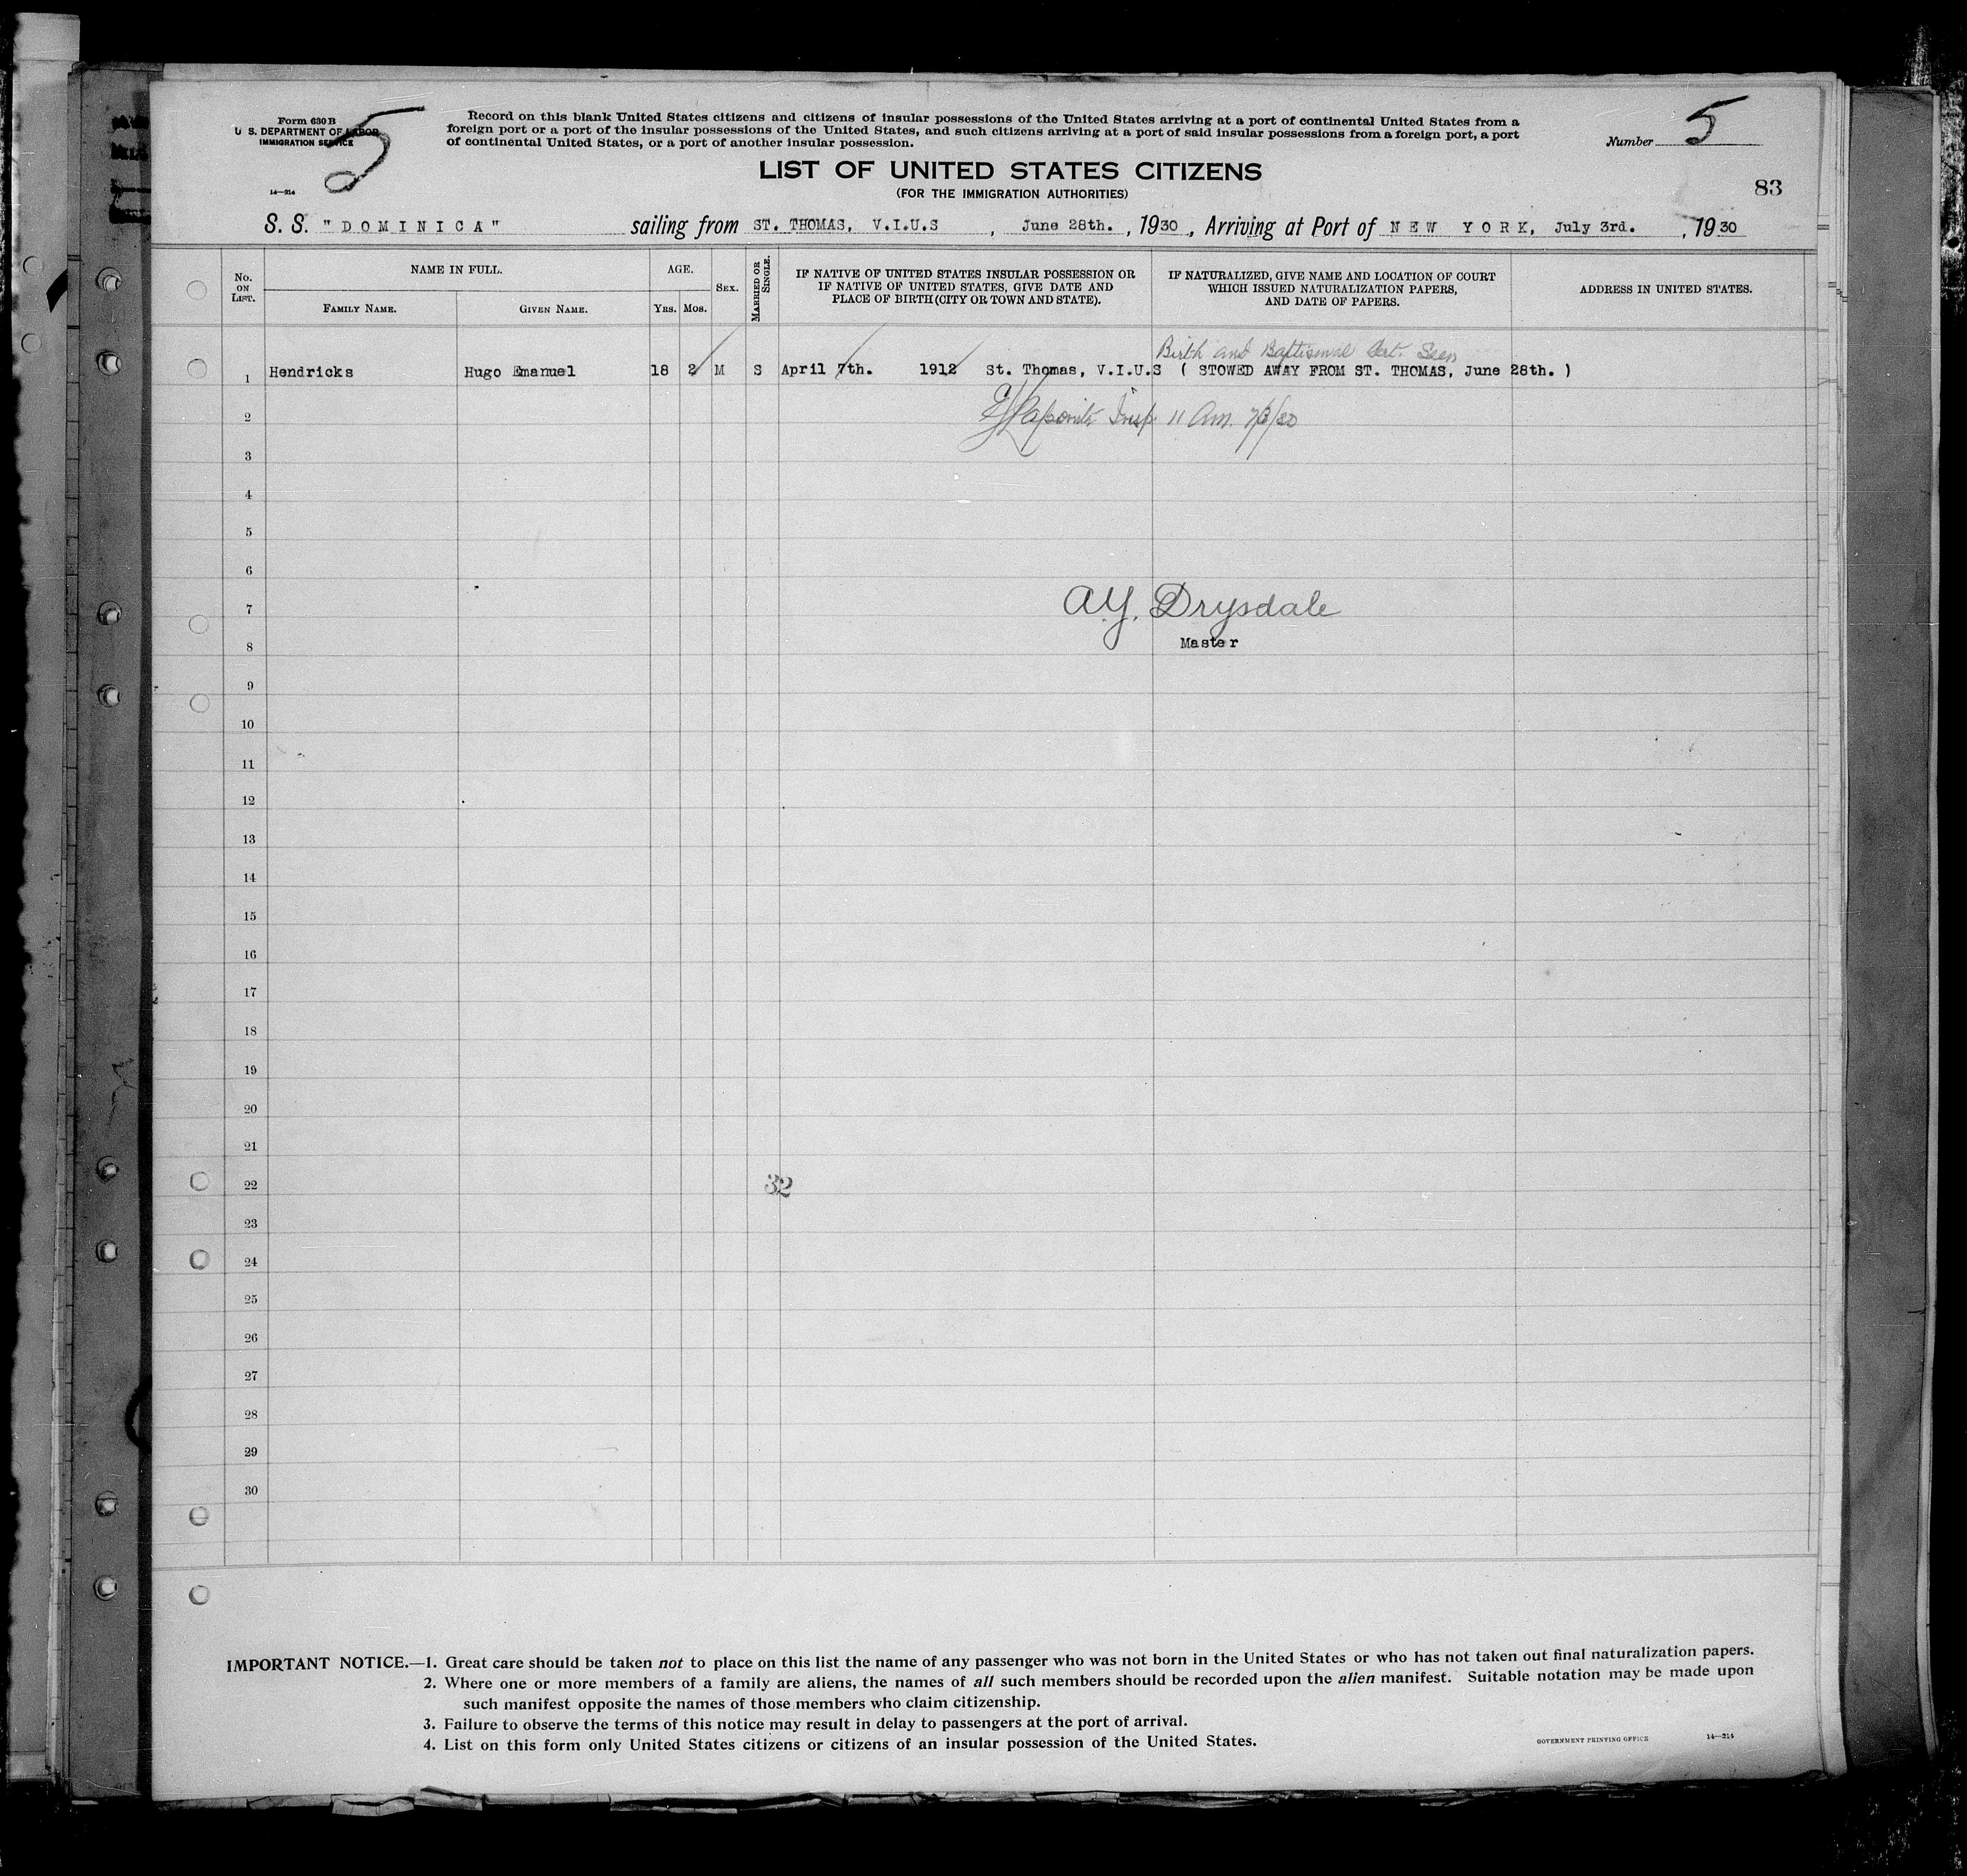 Form 630 B
U. S. DEPARTMENT OF LABOR
IMMIGRATION SERVICE
14—214
5
Record on this blank United States citizens and citizens of insular possessions of the United States arriving at a port of continental United States from a
foreign port or a port of the insular possessions of the United States, and such citizens arriving at a port of said insular possessions from a foreign port, a port
of continental United States, or a port of another insular possession.
Number 5
LIST OF UNITED STATES CITIZENS
(FOR THE IMMIGRATION AUTHORITIES)
83
S. S. "DOMINICA" sailing from ST. THOMAS, V.I.U.S , June 28th. , 1930 , Arriving at Port of NEW YORK, July 3rd. , 1930
No. ON LIST.
NAME IN FULL.
FAMILY NAME.
GIVEN NAME.
AGE.
YRS.
MOS.
SEX.
MARRIED OR SINGLE.
IF NATIVE OF UNITED STATES INSULAR POSSESSION OR
IF NATIVE OF UNITED STATES, GIVE DATE AND
PLACE OF BIRTH (CITY OR TOWN AND STATE).
IF NATURALIZED, GIVE NAME AND LOCATION OF COURT
WHICH ISSUED NATURALIZATION PAPERS,
AND DATE OF PAPERS.
ADDRESS IN UNITED STATES.
Birth and Baptismal Cert. Seen
1 Hendricks Hugo Emanuel 18 2 M S April 7th. 1912 St. Thomas, V.I.U.S ( STOWED AWAY FROM ST. THOMAS, June 28th. )
2 Insp. 11 Am. 7/3/30
3
4
5
6
7 A.Y. Drysdale
8 Master
9
10
11
12
13
14
15
16
17
18
19
20
21
22 32
23
24
25
26
27
28
29
30
IMPORTANT NOTICE.—1. Great care should be taken not to place on this list the name of any passenger who was not born in the United States or who has not taken out final naturalization papers.
2. Where one or more members of a family are aliens, the names of all such members should be recorded upon the alien manifest. Suitable notation may be made upon
such manifest opposite the names of those members who claim citizenship.
3. Failure to observe the terms of this notice may result in delay to passengers at the port of arrival.
4. List on this form only United States citizens or citizens of an insular possession of the United States.
GOVERNMENT PRINTING OFFICE 14—214